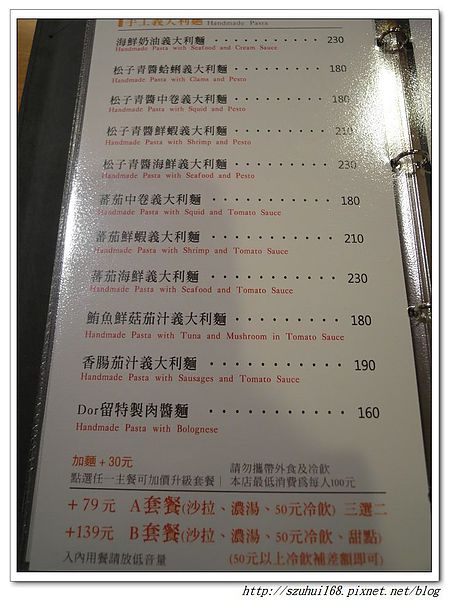 手工義大利麵 Handmade Pasta
海鮮奶油義大利麵 ‧‧‧‧‧‧‧‧‧‧ 230
Handmade Pasta with Seafood and Cream Sauce
松子青醬蛤蜊義大利麵 ‧‧‧‧‧‧‧‧‧‧ 180
Handmade Pasta with Clams and Pesto
松子青醬中卷義大利麵 ‧‧‧‧‧‧‧‧‧‧ 180
Handmade Pasta with Squid and Pesto
松子青醬鮮蝦義大利麵 ‧‧‧‧‧‧‧‧‧‧ 210
Handmade Pasta with Shrimp and Pesto
松子青醬海鮮義大利麵 ‧‧‧‧‧‧‧‧‧‧ 230
Handmade Pasta with Seafood and Pesto
蕃茄中卷義大利麵 ‧‧‧‧‧‧‧‧‧‧‧ 180
Handmade Pasta with Squid and Tomato Sauce
蕃茄鮮蝦義大利麵 ‧‧‧‧‧‧‧‧‧‧‧ 210
Handmade Pasta with Shrimp and Tomato Sauce
蕃茄海鮮義大利麵 ‧‧‧‧‧‧‧‧‧‧‧ 230
Handmade Pasta with Seafood and Tomato Sauce
鮪魚鮮菇茄汁義大利麵 ‧‧‧‧‧‧‧‧‧ 180
Handmade Pasta with Tuna and Mushroom in Tomato Sauce
香腸茄汁義大利麵 ‧‧‧‧‧‧‧‧‧‧‧ 190
Handmade Pasta with Sausages and Tomato Sauce
Dor留特製肉醬麵 ‧‧‧‧‧‧‧‧‧‧‧ 160
Handmade Pasta with Bolognese
加麵+30元 請勿攜帶外食及冷飲
點選任一主餐可加價升級套餐| 本店最低消費為每人100元
+79元 A套餐(沙拉、濃湯、50元冷飲) 三選二
+139元 B套餐(沙拉、濃湯、50元冷飲、甜點)
入內用餐請放低音量 (50元以上冷飲補差額即可)
http://szuhui168.pixnet.net/blog